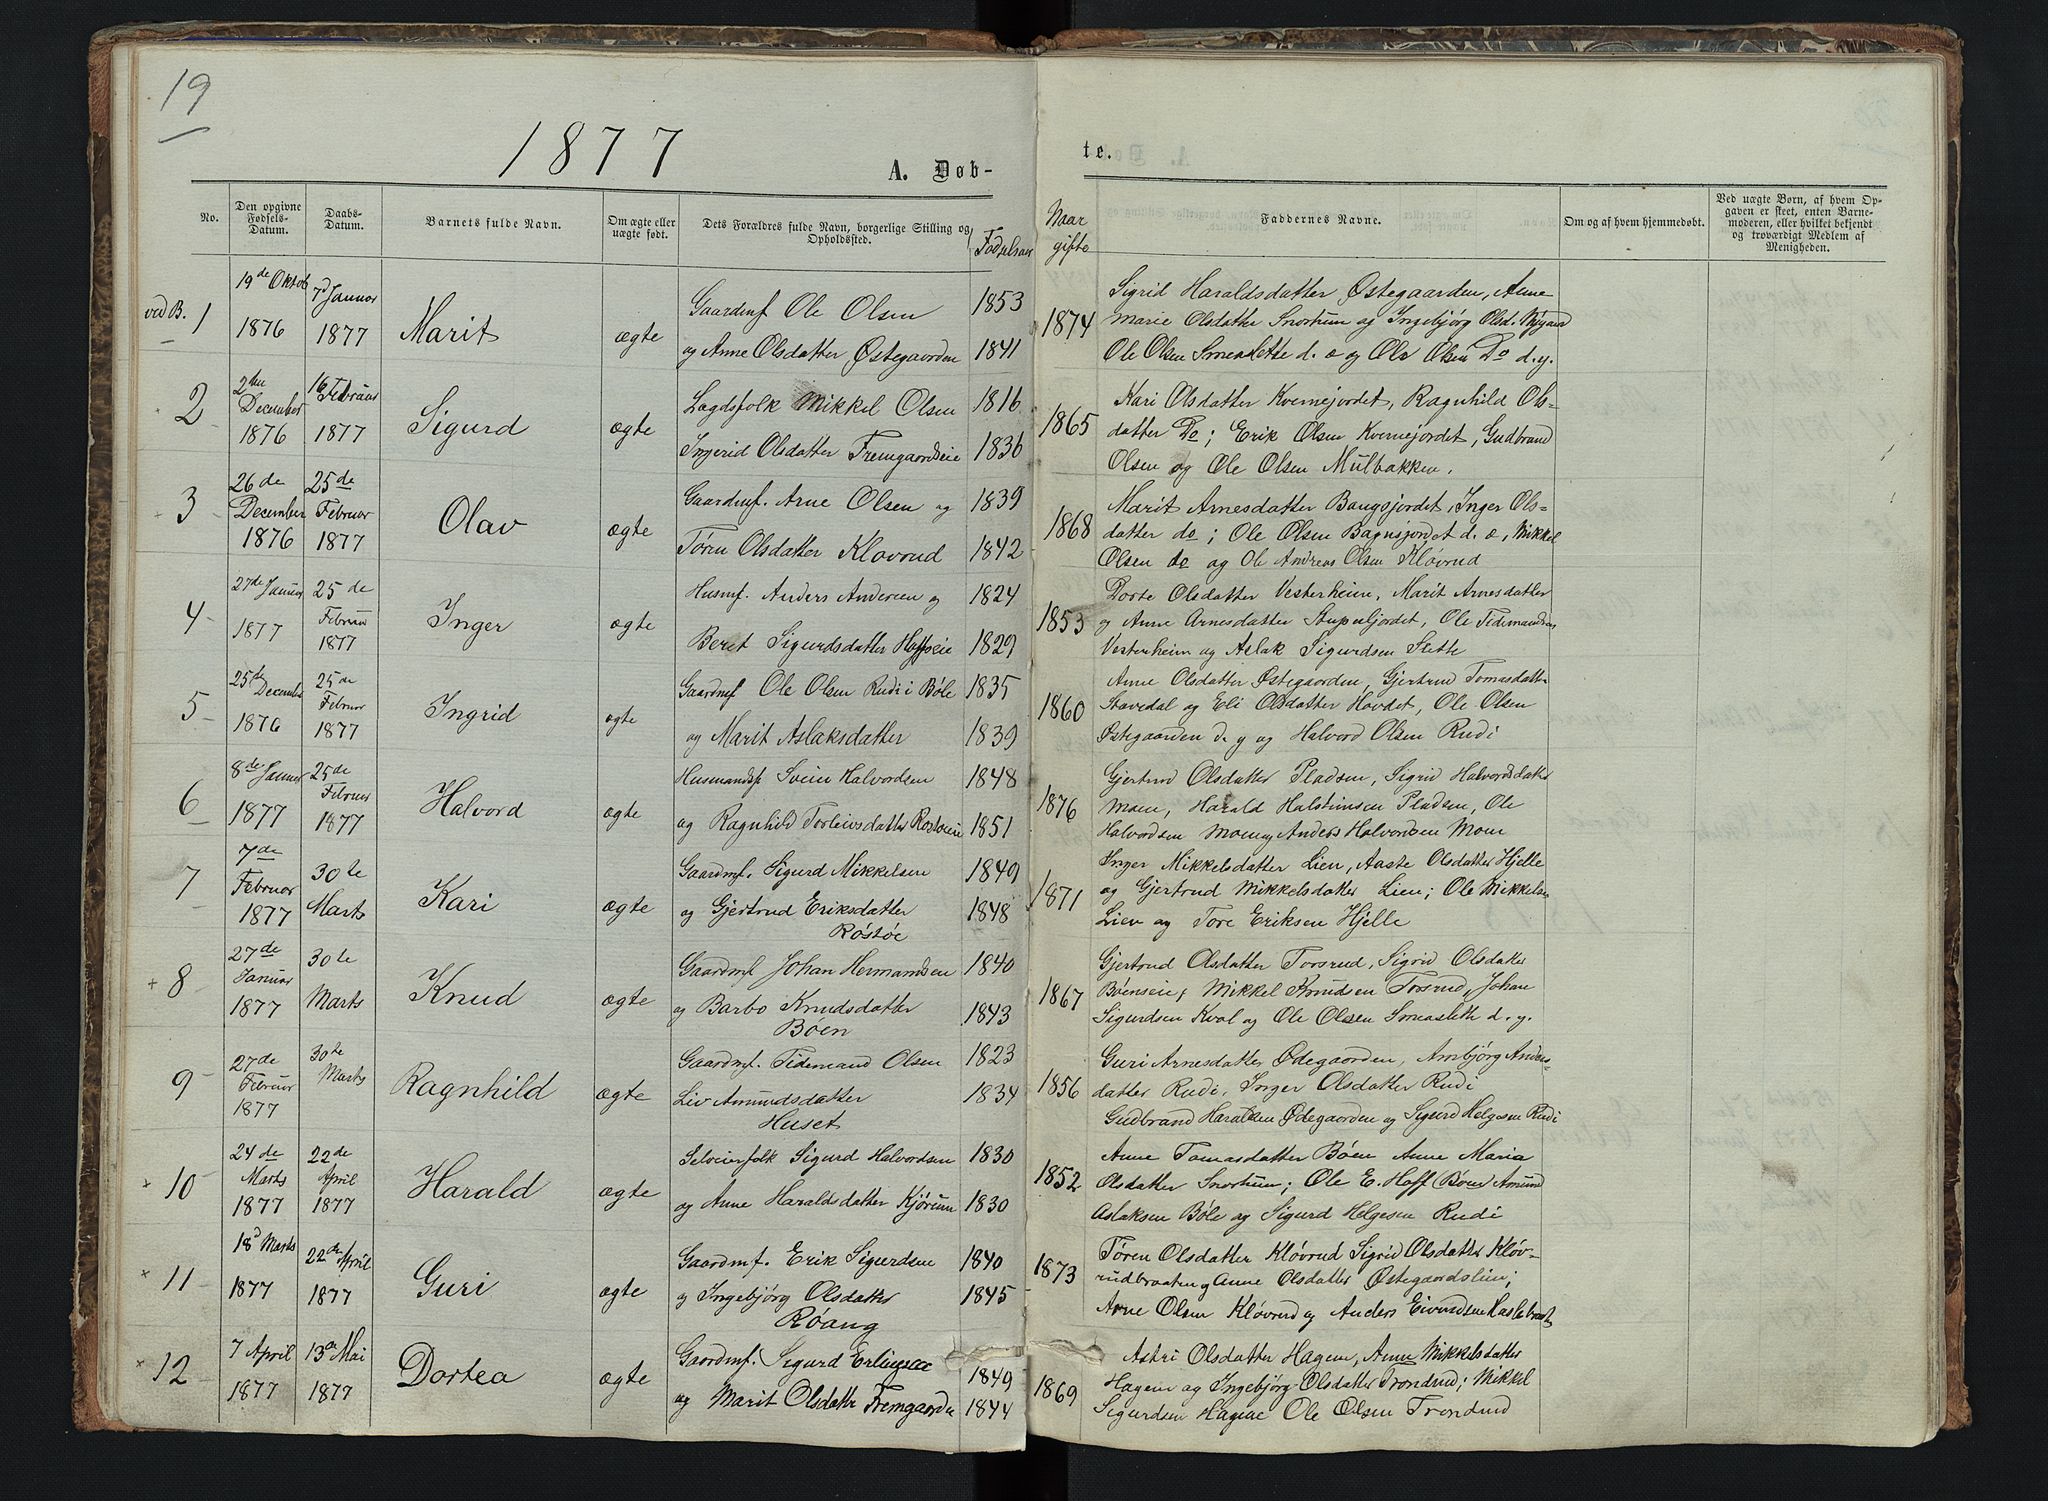 19
1877
A. Døb-
te.
No.
Den opgivne Fødsels-Datum.
Daabs-Datum.
Barnets fulde Navn.
Om ægte eller uægte født.
Dets Forældres fulde Navn, borgerlige Stilling og Opholdssted.
Fødselsaar
Naar gifte
Faddernes Navne.
Om og af hvem hjemmedøbt.
Ved uægte Børn, af hvem Opgaven er skeet, enten Barnemoderen, eller hvilket bekjendt og troværdigt Medlem af Menigheden.
ved B. 1
19de Oktob 1876
7d Januar 1877
Marit
ægte
Gaardmf Ole Olsen 1853
og Anne Olsdatter Østegaarden 1841
1874
Sigrid Haraldsdatter Østegaarden, Anne
Marie Olsdatter Snortum og Ingebjørg Olsd.
Ole Olsen d. æ og Ole Olsen Do d. y.
2
2den December 1876
16 Februar 1877
Sigurd
ægte
Lægdsfolk Mikkel Olsen 1816
Ingerid Olsdatter Fremgaardseie 1836
1865
Kari Olsdatter Kvernejordet, Ragnhild Ols-
datter Do; Erik Olsen Kvernejordet, Gudbrand
Olsen og Ole Olsen Mulbakken.
3
26de December 1876
25de Februar 1877
Olav
ægte
Gaardmf. Arne Olsen og 1839
Tøren Olsdatter Klovrud 1842
1868
Marit Arnesdatter Bangsjordet, Inger Ols-
datter do; Ole Olsen Bagnsjordet d. æ, Mikkel
Olsen do og Ole Andreas Olsen Kløvrud
4
27de Januar 1877
25de Februar 1877
Inger
ægte
Husmf. Anders Andersen og 1824
Beret Sigurdsdatter Hoffseie 1829
1853
Dorte Olsdatter Vesterheim, Marit Arnesdatter
og Anne Arnesdatter Ole Tidemandsen
Vesterheim og Aslak Sigurdsen Slette
5
25de December 1876
25de Februar 1877
Ingrid
ægte
Gaardmf Ole Olsen Rudi i Bøle 1835
og Marit Aslaksdatter 1839
1860
Anne Olsdatter Østegaarden, Gjertrud Tomasdatt-
Stavedal og Eli Olsdatter Hovdet, Ole Olsen
Østegaarden d. y og Halvord Olsen Rudi
6
8de Januar 1877
25de Februar 1877
Halvord
ægte
Husmandsf Svein Halvordsen 1848
og Ragnhild Torleivsdatter Røstøeie 1851
1876
Gjertrud Olsdatter Pladsen, Sigrid Halvordsdatter
Moen, Harald Halstensen Pladsen, Ole
Halvordsen Moen og Anders Halvordsen Moen
7
7de Februar 1877
30te Marts
Kari
ægte
Gaardmf. Sigurd Mikkelsen 1849
og Gjertrud Eriksdatter 1848
Røstøe
1871
Inger Mikkelsdatter Lien, Aaste Olsdatter Hjelle
og Gjertrud Mikkelsdatter Lien; Ole Mikkelsen
Lien og Tore Eriksen Hjelle
+ 8
27de Januar 1877
30te Marts
Knud
ægte
Gaardmf Johan Hermandsen 1840
og Barbo Knudsdatter 1843
Bøen
1867
Gjertrud Olsdatter Torsrud, Sigrid Olsdatter
Bøenseie; Mikkel Knudsen Torsrud, Johan
Sigurdsen Kval og Ole Olsen d. y.
9
27de Februar 1877
30te Marts
Ragnhild
ægte
Gaardmf. Tidemand Olsen 1823
Liv Amundsdatter 1834
Huset
1856
Guri Arnesdatter Ødegaarden, Ambjørg Anders-
datter Rudi, Inger Olsdatter Rudi
Gudbrand Haraldsen Ødegaarden og Sigurd Helgesen Rudi
+ 10
24de Marts 1877
22de April 1877
Harald
ægte
Selveierfolk Sigurd Halvordsen 1830
og Anne Haraldsdatter Kjørum 1830
1852
Anne Tomasdatter Bøen Anne Maria
Olsdatter Snortum; Ole E. Hoff Bøen Amund
Aslaksen Bøle og Sigurd Helgesen Rudi
+ 11
18d Marts 1877
22de April 1877
Guri
ægte
Gaardmf. Erik Sigurdsen 1840
og Ingebjørg Olsdatter 1845
Røang
1873
Tøren Olsdatter Kløvrud Sigrid Olsdatter Kløv-
rudbraaten og Anne Olsdatter Østegaardslien;
Arne Olsen Kløvrud og Anders Eivindsen
+ 12
7 April 1877
13de Mai 1877
Dortea
ægte
Gaardmf. Sigurd Erlingsen 1849
og Marit Olsdattr Fremgaarden 1844
1869
Astri Olsdatter Hagene, Anne Mikkelsdatter
Hagene og Ingebjørg Olsdatter Trondrud; Mikkel
Sigurdsen Hagene Ole Olsen Trondrud